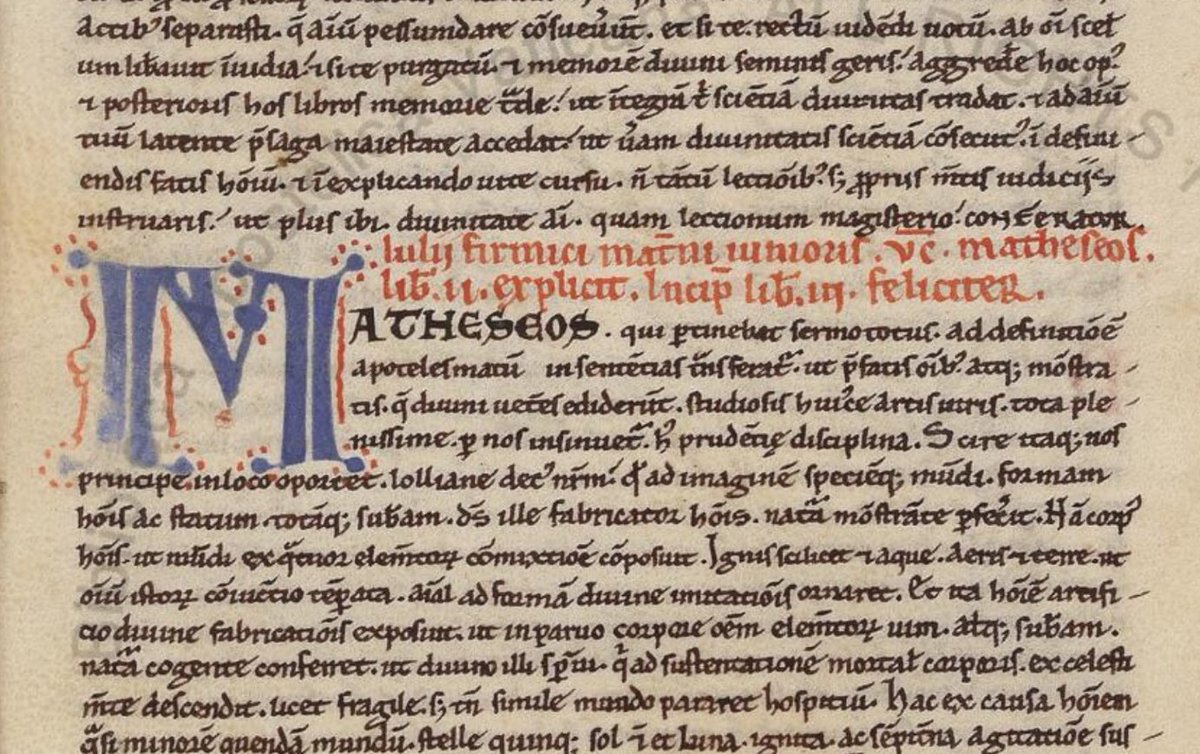 actib' separasti. q̄ aīū pessumdare cōsueuūt. et si te. rectū uidēdi uotū. ab oī scel
um libauit īuidia. ⁊ si te purgatū. ⁊ memorē diuini seminis geris. Aggrede hoc op'
⁊ posterioris hos libros memorie t̄de. ut īteg̃m t' sciētiā diuinitas tradat. ⁊ ad aīū
tuū latente p̄saga maiestate accedat. ut ūam diuinitatis sciētiā cōsecut' ī defini-
endis fatis hōīu. ⁊ ī explicando uite cursu. n̄ tātū lectiōib' s; ꝓpriis m̄tis iudiciis
instruaris. ut plus ibi. diuinitate aī. quam lectionum magisterio conferator
Iulij firmici mat̄ni iunioris. v̄c. matheseos.
lib̄. ii. explicit. Incip̄ lib̄. iii. feliciter.
MATHESEOS. qui ꝑtinebat sermo totus. ad definitiōē
apotelesmatū in sentētias t̄nsferat̃. ut p̄fatis oīb' atq; mōstra-
tis. q̄ diuini uet̄es ediderūt. studiosis huic̄e artis uiris. tota ple-
nissime. ꝑ nos insinuet̃. h̄ prudētię disciplina. Scire itaq; nos
principe in loco oportet. lolliane dec' nr̄m. qd̓ ad imaginē speciēq; mūdi. formam
hōīs ac statum. totāq; sub̄am. d̄s ille fabricator hōīs. nat̃a mōstrāte ꝑfecit. Nā corp'
hōīs. ut mūdi ex q̃tuor elem̄toꝝ cōmixtiōe cōposuit. Ignis scilicet ⁊ aque. Aeris ⁊ terre. ut
oīū istoꝝ cōiūctio tēꝑata. aīal ad formā diuine imitatiōis ornaret. Et ita hōīē artifi-
cio diuine fabricatiōis exposuit. ut in paruo corpore oēm elem̄toꝝ uim. atq; sub̄am.
nat̃a cogente conferret. ut diuino illi sp̄iu. q̄ ad sustentationē mortal' corporis. ex celesti
m̄te descendit. licet fragile. s; tn̄ simile mundo pararet hospitiū. Hac ex causa. hōīem
q̃si minorē quendā mundū. stelle quinq; sol ⁊ et luna. ignita. ac sēpit̄na agitatiōe sus-